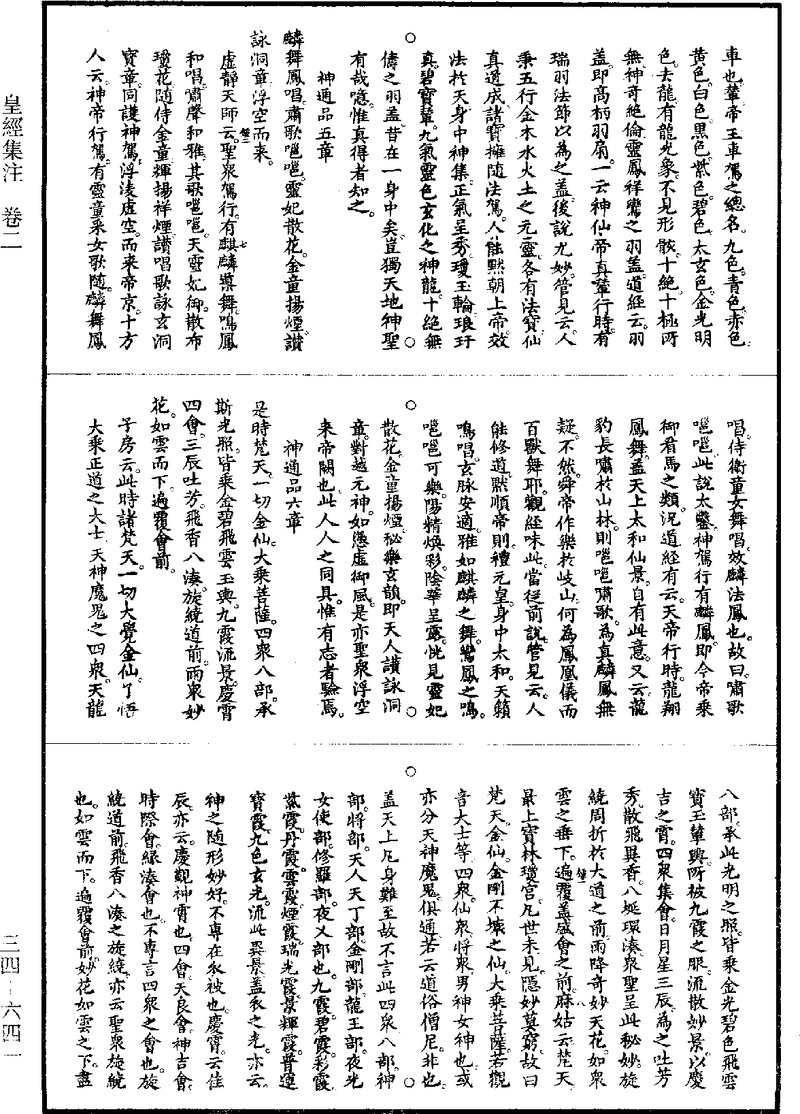 車也輦帝王車駕之總名九色青色赤色
黃色白色黑色紫色碧色太玄色金光明
色去龍有龍光象不見形骸十絕十極所
無神奇絕倫靈鳳祥鸞之羽蓋道經云羽
蓋即高柄羽扇一云神仙帝真輦行時有
瑞羽法節以為之蓋後說尤妙管見云人
秉五行金木水火土之元靈各有法寶仙
真道成諸寶擁隨法駕人能默朝上帝效
法於天身中神集正氣呈秀瓊玉輪琅玕
真碧寶輦九氣靈色玄化之神龍十絕無
儔之羽蓋昔在一身中矣豈獨天地神聖
有哉噫惟真得者知之
神通品五章
麟舞鳳唱嘯歌嗈嗈靈妃散花金童揚煙讃
詠洞章浮空而來
虛靜天師云聖衆駕行有麒麟樂舞鳴鳳
和唱嘯聲和雅其歌嗈嗈天靈妃御散布
瓊花隨侍金童輝揚祥煙讃唱歌詠玄洞
寶章同護神駕浮淩虛空而來帝京十方
人云神帝行駕有靈童采女歌隨麟舞鳳
唱侍衛童女舞唱效麟法鳳也故曰嘯歌
嗈嗈此說太鑿神駕行有麟鳳即今帝乘
御看馬之類況道經有云天帝行時龍翔
鳳舞蓋天上太和仙景自有此意又云龍
豹長嘯於山林則嗈嗈嘯歌為真麟鳳無
疑不然舜帝作樂於岐山何為鳳凰儀而
百獸舞耶觀經味此當從前說管見云人
能修道默順帝則禮元皇身中太和天籟
鳴唱玄脉安適雅如麒麟之舞鸞鳳之鳴
嗈嗈可樂陽精煥彩陰華呈露恍見靈妃
散花金童揚煙秘樂玄韻即天人讃詠洞
章對越元神如憑虛御風是亦聖衆浮空
来帝闕也此人人之同具惟有志者驗焉
神通品六章
是時梵天一切金仙大乘菩薩四衆八部承
斯光照皆乘金碧飛雲玉輿九霞流景慶霄
四會三辰吐芳飛香八湊旋繞道前雨衆妙
花如雲而下遍覆會前
子房云此時諸梵天一切大覺金仙了悟
大乘正道之大士天神魔鬼之四衆天龍
八部承此光明之照皆乘金光碧色飛雲
寶玉輦輿所被九霞之服流散妙景以慶
吉之霄四衆集會日月星三辰為之吐芳
秀散飛異香八埏環湊衆聖呈此秘妙旋
繞周折於大道之前雨降奇妙天花如衆
雲之垂下遍覆蓋盛會之前麻姑云梵天
最上寶林瓊宮凡世未見隱妙莫窮故曰
梵天金仙金剛不壞之仙大乘菩薩若觀
音大士等四衆仙衆將衆男神女神也或
亦分天神魔鬼俱通若云道俗僧尼非也
蓋天上凡身難至故不言此四衆八部神
部將部天人天丁部金剛部龍王部夜光
女使部修羅部夜叉部也九霞碧霞彩霞
紫霞丹霞雲霞煙霞瑞光霞景輝霞普蓮
寶霞九色玄光流此異景蓋衣之光亦云
神之隨形妙好不專在衣被也慶霄云佳
辰亦云慶觀神霄也四會天良會神吉會
時際會緣湊會也不專言四衆之會也旋
繞道前飛香八湊之旋繞亦云聖衆旋繞
也如雲而下遍覆會前妙花如雲之下盡
皇經集注　卷二
三四—六四一